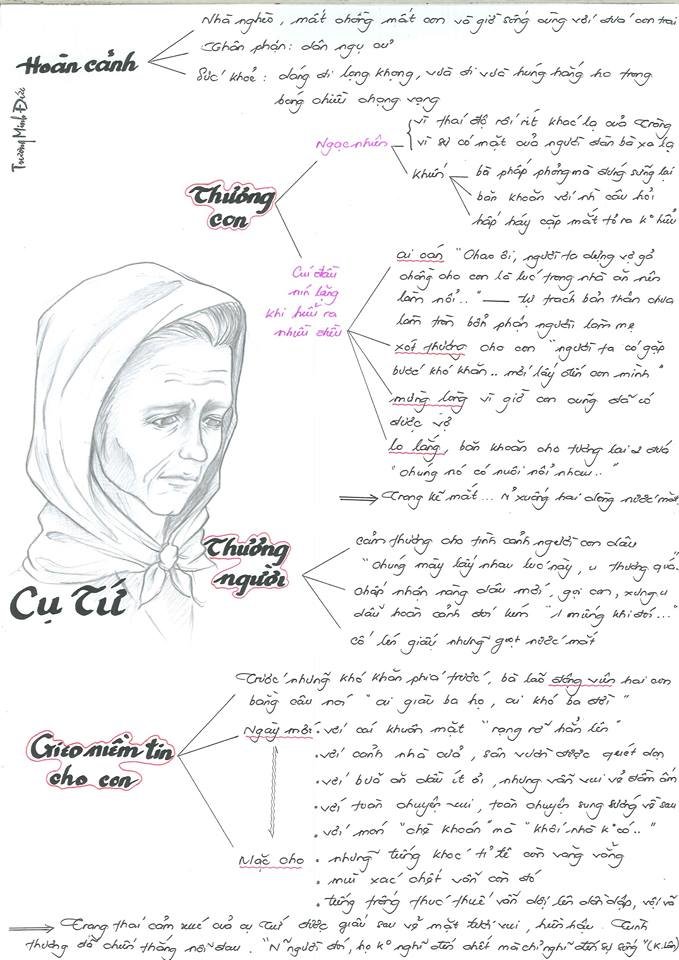 Nhà nghèo, mất chồng mất con và giờ sống cùng với đứa con trai
Hoàn cảnh
Thân phận: dân ngụ cư
Sức khoẻ: dáng đi lọng khọng, vừa đi vừa húng hắng ho trong
bóng chiều chạng vạng
Trương Minh Đức
Thương
con
Ngạc nhiên
vì thái độ rối rít khác lạ của Tràng
vì sự có mặt của người đàn bà xa lạ
khiến
bà phấp phỏng mà đứng sững lại
băn khoăn với nh câu hỏi
hấp háy cặp mắt tỏ ra k° hiểu
Cúi đầu
nín lặng
khi hiểu ra
nhiều điều
ai oán "Chao ôi, người ta dựng vợ gả
chồng cho con là lúc trong nhà ăn nên
làm nổi.." — tự trách bản thân chưa
làm tròn bổn phận người làm mẹ
xót thương cho con "người ta có gặp
bước khó khăn.. mới lấy đến con mình"
mừng lòng vì giờ con cũng đã có
được vợ
lo lắng, băn khoăn cho tương lai 2 đứa
"chúng nó có nuôi nổi nhau.."
⇒ Trong kẽ mắt... rỉ xuống hai dòng nước mắt
Thương
người
cảm thương cho tình cảnh người con dâu
"chúng mày lấy nhau lúc này, u thương quá.
chấp nhận nàng dâu mới, gọi con, xưng u
dẫu hoàn cảnh đói kém
cố lén giấu những giọt nước mắt
Cụ Tứ
Gieo niềm tin
cho con
Trước những khó khăn phía trước, bà lão động viên hai con
bằng câu nói "ai giàu ba họ, ai khó ba đời"
Ngày mới
• với cái khuôn mặt "rạng rỡ hẳn lên"
• với cảnh nhà cửa, sân vườn được quét dọn
• với bữa ăn dẫu ít ỏi, nhưng vẫn vui vẻ đầm ấm
• với toàn chuyện vui, toàn chuyện sung sướng về sau
• với món "chè khoán" mà "khối nhà k° có.."
Mặc cho
• những tiếng khóc tỉ tê còn vang vẳng
• mùi xác chết vẫn còn đó
• tiếng trống thúc thuế vẫn dội lên dồn dập, vội vã
⇒ Trạng thái cảm xúc của cụ Tứ được giấu sau vẻ mặt tươi vui, hiền hậu. Tình
thương đã chiến thắng nỗi đau. "N~ người đói, họ k° nghĩ đến chết mà chỉ nghĩ đến sự sống" (K.Lân)